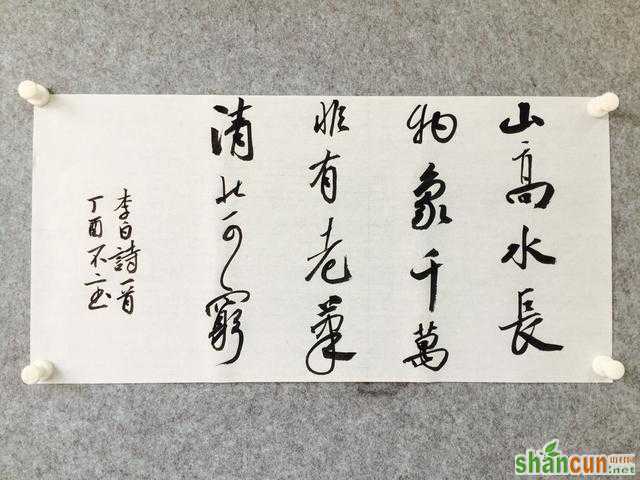 山高水長
物象千萬
非有老筆
清壯可窮
李白詩一首
丁酉不二
shancun
山村网
.net